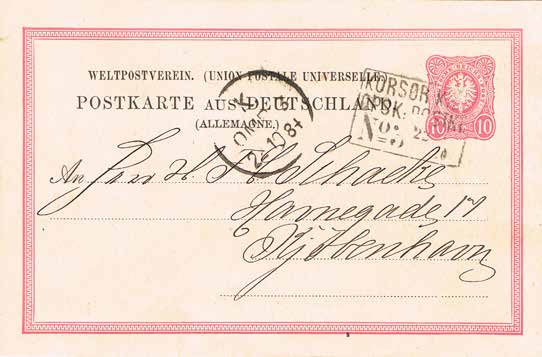 WELTPOSTVEREIN. (UNION POSTALE UNIVERSELLE)
POSTKARTE AUS DEUTSCHLAND
(ALLEMAGNE.)
KORSØR K
DPSK: POSTKT
No: 3 22
10 10
K
OMB. 5
22 10 84
An Herrn H. Schacke
Havnegade 17
Kjöbenhavn